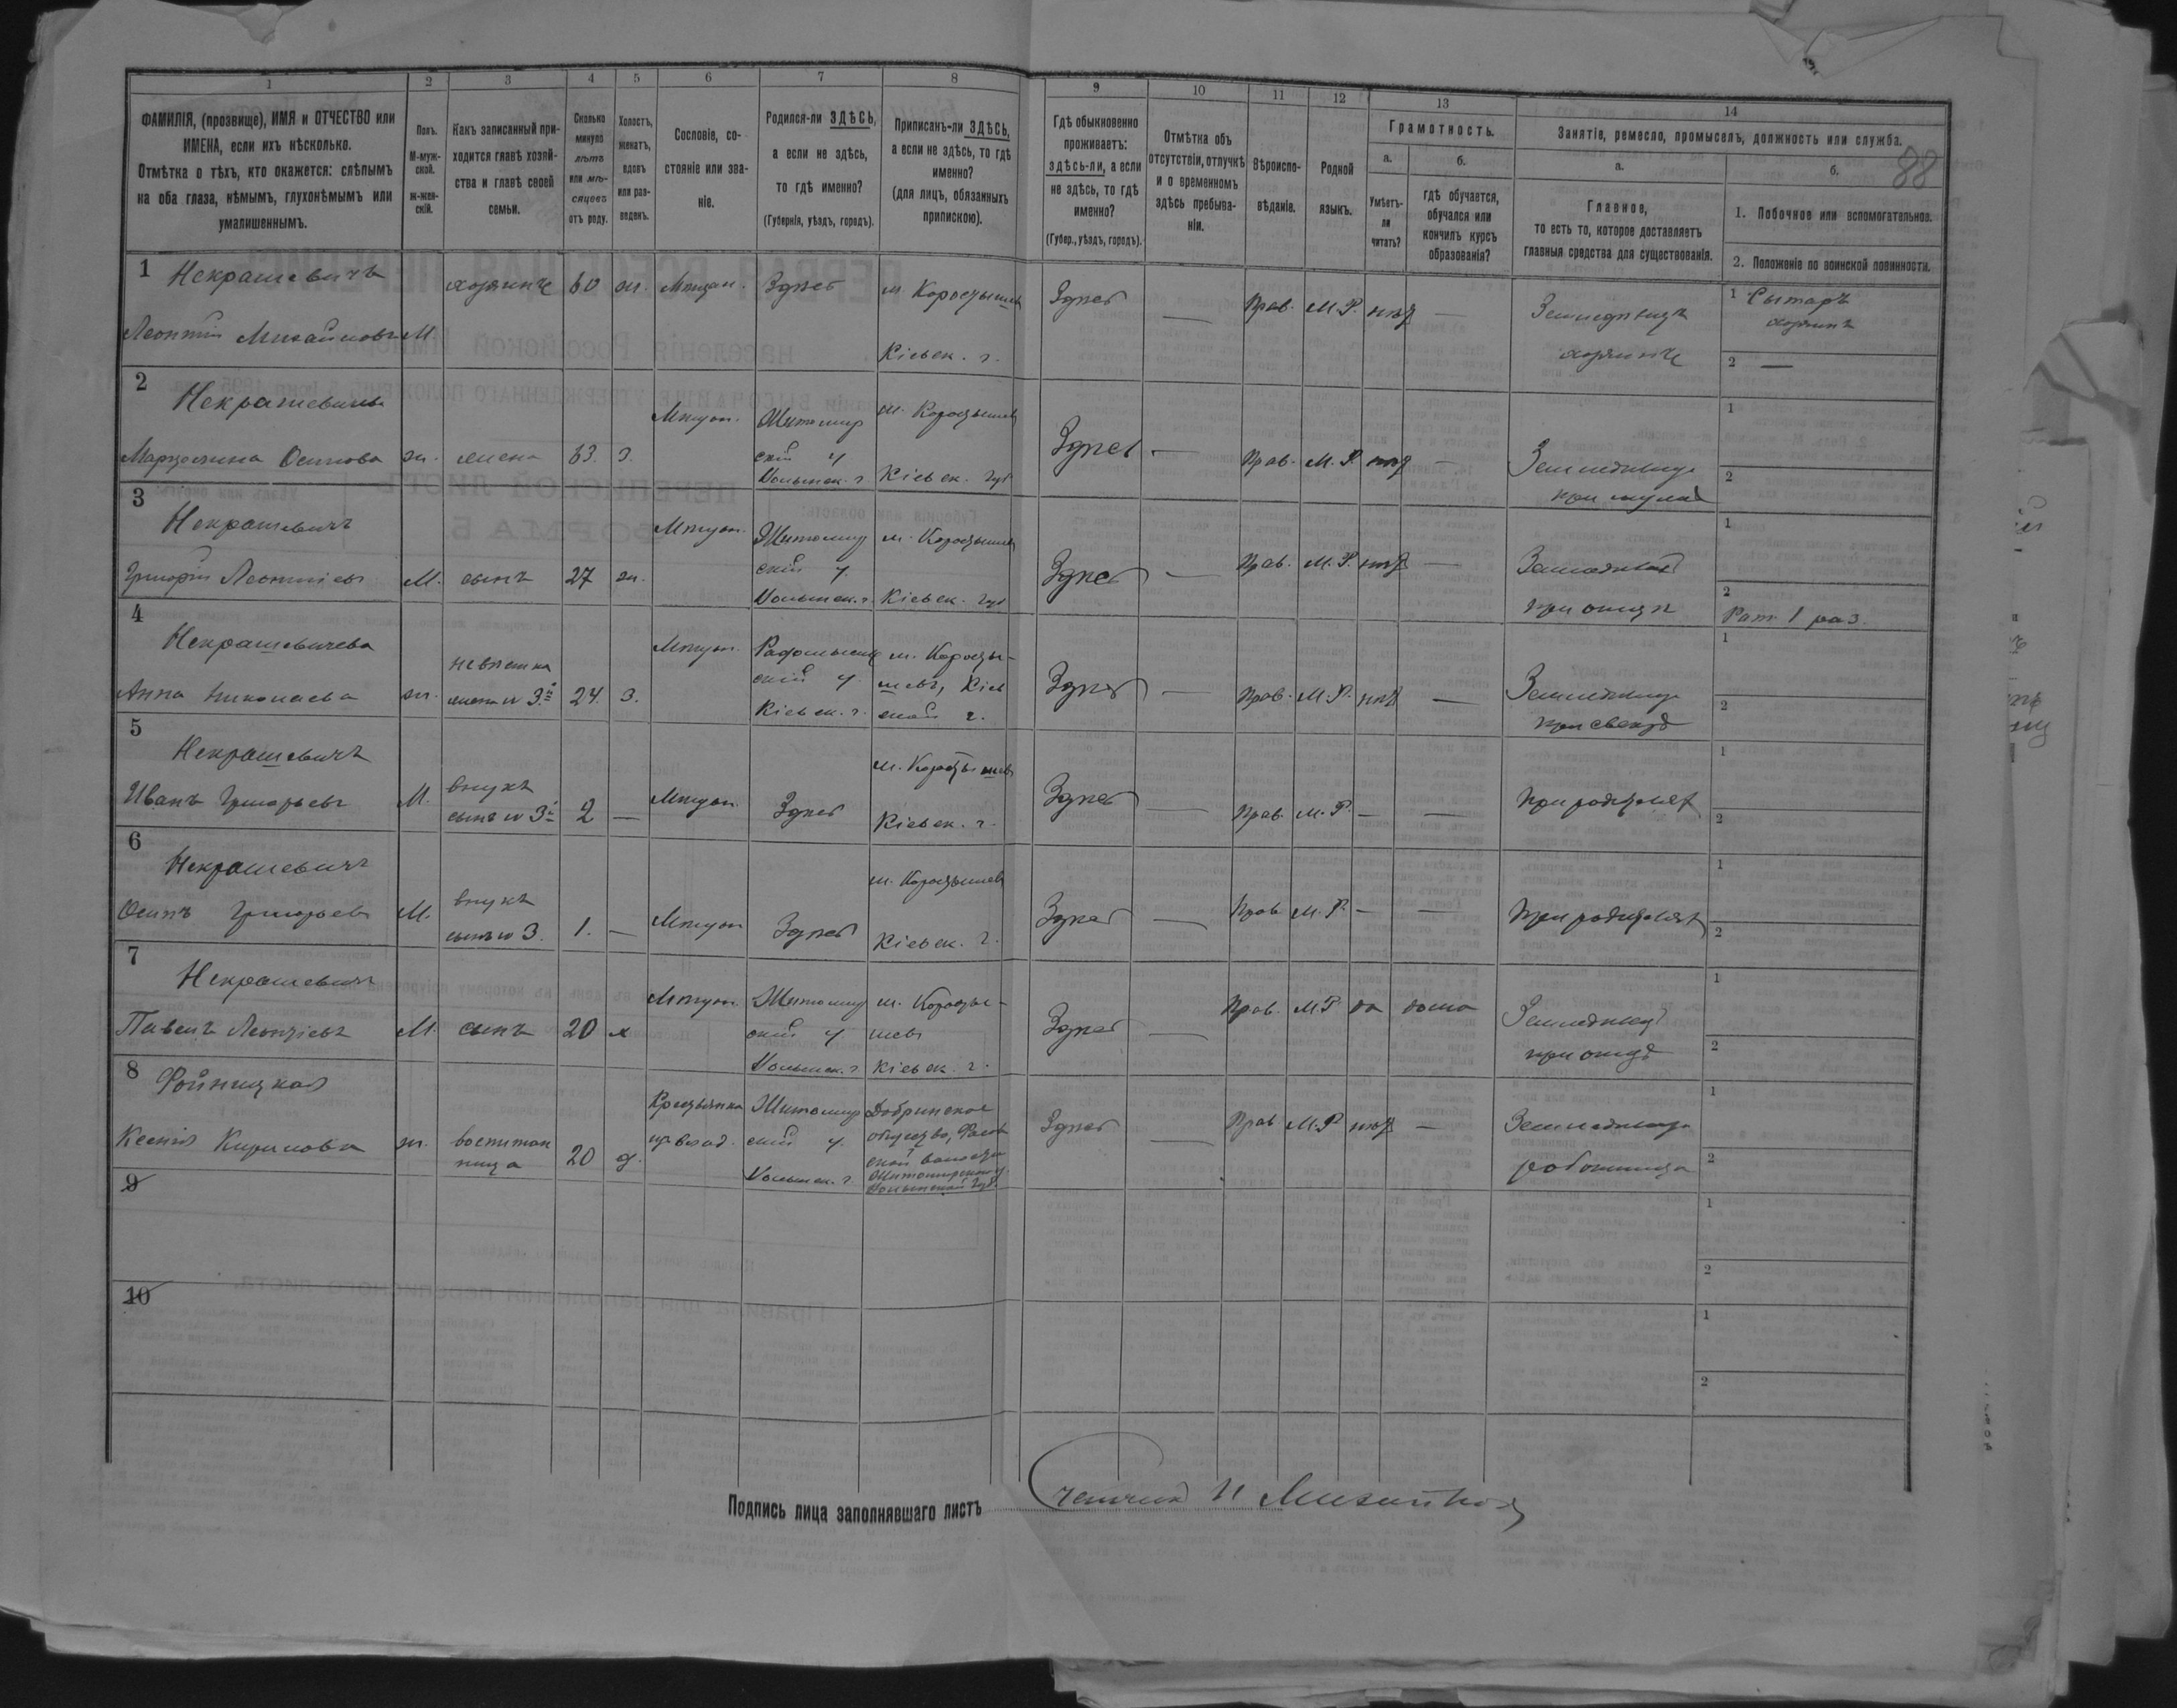 88
1 2 3 4 5 6 7 8 9 10 11 12 13 14
ФАМИЛІЯ, (прозвище), ИМЯ и ОТЧЕСТВО или ИМЕНА, если ихъ нѣсколько.
Отмѣтка о тѣхъ, кто окажется: слѣпымъ на оба глаза, нѣмымъ, глухонѣмымъ или умалишеннымъ.
Полъ. М-мужской. ж-женскій.
Какъ записанный приходится главѣ хозяйства и главѣ своей семьи.
Сколько минуло лѣтъ или мѣсяцевъ отъ роду.
Холостъ, женатъ, вдовъ или разведенъ.
Сословіе, состояніе или званіе.
Родился-ли ЗДѢСЬ, а если не здѣсь, то гдѣ именно?
(Губернія, уѣздъ, городъ).
Приписанъ-ли ЗДѢСЬ, а если не здѣсь, то гдѣ именно?
(для лицъ, обязанныхъ припискою).
Гдѣ обыкновенно проживаетъ: здѣсь-ли, а если не здѣсь, то гдѣ именно?
(Губер., уѣздъ, городъ).
Отмѣтка объ отсутствіи, отлучкѣ и о временномъ здѣсь пребываніи.
Вѣроисповѣданіе.
Родной языкъ.
Грамотность.
а. Умѣетъ-ли читать?
б. гдѣ обучается, обучался или кончилъ курсъ образованія?
Занятіе, ремесло, промыселъ, должность или служба.
а. Главное, то есть то, которое доставляетъ главныя средства для существованія.
б.
1. Побочное или вспомогательное.
2. Положеніе по воинской повинности.
1 Некрашевичъ
Леонтій Михайловъ М. хозяинъ 60 ж. Мѣщан. Здѣсь м. Коростышев Кіевск. г. Здѣсь — Прав. М.Р. нѣт — Земледѣлецъ хозяинъ 1 Сытаръ хозяинъ 2 —
2 Некрашевичъ
Осипова ж. жена 63. З. Мѣщан. Житомирскій у. Волынск. г. м. Коростышев Кіевск. губ Здѣсь — Прав. М.Р. нѣт — при мужѣ 1 2
3 Некрашевичъ
Григорій Леонтіевъ М. сынъ 27 ж. Мѣщан. Житомирскій у. Волынск. г. м. Коростышев Кіевск. губ Здѣсь — Прав. М.Р. нѣт — при отцѣ 1 2 Рат. 1 раз.
4 Некрашевичева
Анна Николаева ж. невѣстка жена № 3й 24. З. Мѣщан. Радомысльскій у. Кіевск. г. м. Коростышевъ, Кіевской г. Здѣсь — Прав. М.Р. нѣт — при свекрѣ 1 2
5 Некрашевичъ
Иванъ Григорьевъ М. внукъ сынъ № 3й 2 — Мѣщан. Здѣсь м. Коростышевъ Кіевск. г. Здѣсь — Прав. М.Р. — — При родителях 1 2
6 Некрашевичъ
Осипъ Григорьевъ М. внукъ сынъ № 3. 1. — Мѣщан Здѣсь м. Коростышев Кіевск. г. Здѣсь — Прав М.Р. — — При родителях 1 2
7 Некрашевичъ
Павелъ Леонтіевъ М. сынъ 20 х Мѣщан. Житомирскій у. Волынск. г. м. Коростышевъ Кіевск. г. Здѣсь — Прав. М.Р. да дома при отцѣ 1 2
8 Фойницкая
Ксенія Кирилова ж. воспитанница 20 д. Крестьянка Житомирскій у. Волынск. г. Добринское общество, волости Житомирскаго у. Волынской губ. Здѣсь — Прав М.Р нѣт — работница 1 2
9 1 2
10 1 2
Подпись лица заполнявшаго листъ
Счетчик И